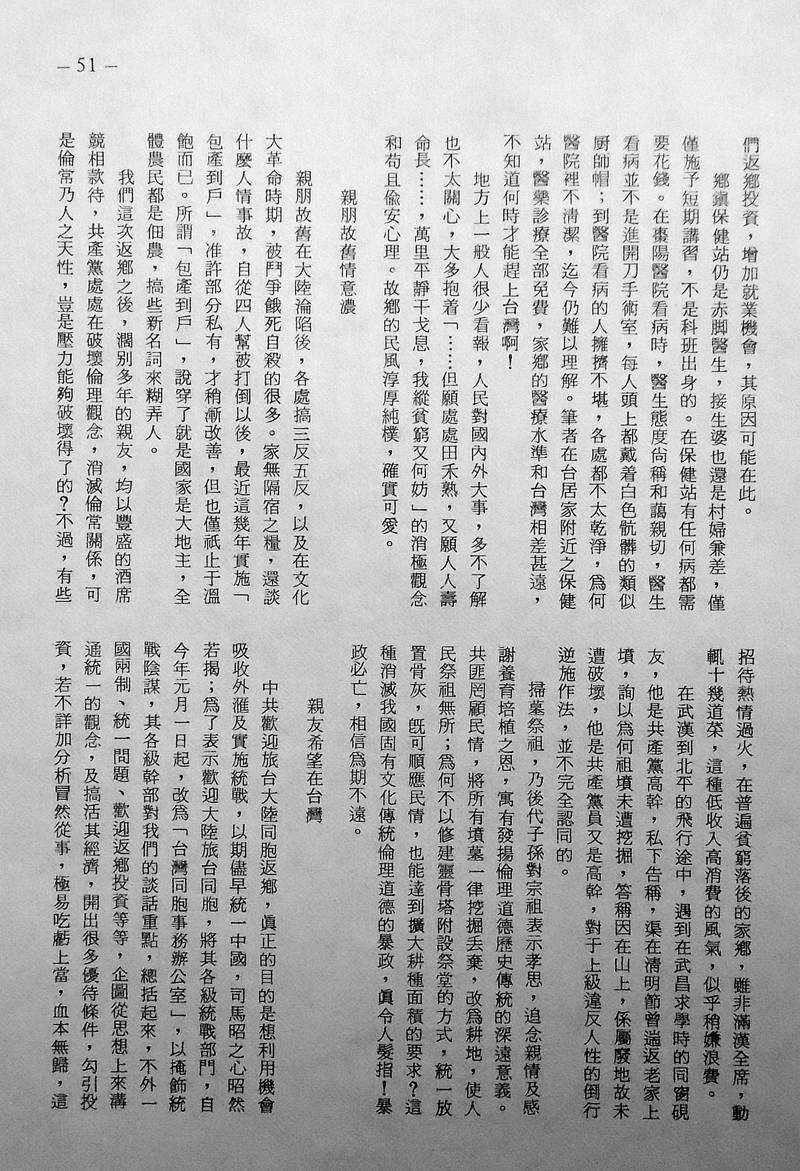 — 51 —
們返鄉投資，增加就業機會，其原因可能在此。
鄉鎭保健站仍是赤脚醫生，接生婆也還是村婦兼差，僅
僅施予短期講習，不是科班出身的。在保健站有任何病都需
要花錢。在棗陽醫院看病時，醫生態度尙稱和藹親切，醫生
看病並不是進開刀手術室，每人頭上都戴着白色骯髒的類似
厨師帽；到醫院看病的人擁擠不堪，各處都不太乾淨，爲何
醫院裡不清潔，迄今仍難以理解。筆者在台居家附近之保健
站，醫藥診療全部免費，家鄉的醫療水準和台灣相差甚遠，
不知道何時才能趕上台灣啊！
地方上一般人很少看報，人民對國內外大事，多不了解
也不太關心，大多抱着「……但願處處田禾熟，又願人人壽
命長……，萬里平靜干戈息，我縱貧窮又何妨」的消極觀念
和苟且偸安心理。故鄉的民風淳厚純樸，確實可愛。
親朋故舊情意濃
親朋故舊在大陸淪陷後，各處搞三反五反，以及在文化
大革命時期，被鬥爭餓死自殺的很多。家無隔宿之糧，還談
什麼人情事故，自從四人幫被打倒以後，最近這幾年實施「
包產到戶」，准許部分私有，才稍漸改善，但也僅祇止于溫
飽而已。所謂「包產到戶」，說穿了就是國家是大地主，全
體農民都是佃農，搞些新名詞來糊弄人。
我們這次返鄉之後，濶別多年的親友，均以豐盛的酒席
競相款待，共產黨處處在破壞倫理觀念，消滅倫常關係，可
是倫常乃人之天性，豈是壓力能夠破壞得了的？不過，有些
招待熱情過火，在普遍貧窮落後的家鄉，雖非滿漢全席，動
輒十幾道菜，這種低收入高消費的風氣，似乎稍嫌浪費。
在武漢到北平的飛行途中，遇到在武昌求學時的同窗硯
友，他是共產黨高幹，私下告稱，渠在淸明節曾遄返老家上
墳，詢以爲何祖墳未遭挖掘，答稱因在山上，係屬廢地故未
遭破壞，他是共產黨員又是高幹，對于上級違反人性的倒行
逆施作法，並不完全認同的。
掃墓祭祖，乃後代子孫對宗祖表示孝思，追念親情及感
謝養育培植之恩，寓有發揚倫理道德歷史傳統的深遠意義。
共匪罔顧民情，將所有墳墓一律挖掘丟棄，改爲耕地，使人
民祭祖無所；爲何不以修建靈骨塔附設祭堂的方式，統一放
置骨灰，旣可順應民情，也能達到擴大耕種面積的要求？這
種消滅我國固有文化傳統倫理道德的暴政，眞令人髮指！暴
政必亡，相信爲期不遠。
親友希望在台灣
中共歡迎旅台大陸同胞返鄉，眞正的目的是想利用機會
吸收外滙及實施統戰，以期儘早統一中國，司馬昭之心昭然
若揭；爲了表示歡迎大陸旅台同胞，將其各級統戰部門，自
今年元月一日起，改爲「台灣同胞事務辦公室」，以掩飾統
戰陰謀，其各級幹部對我們的談話重點，總括起來，不外一
國兩制、統一問題、歡迎返鄉投資等等，企圖從思想上來溝
通統一的觀念，及搞活其經濟，開出很多優待條件，勾引投
資，若不詳加分析冒然從事，極易吃虧上當，血本無歸，這